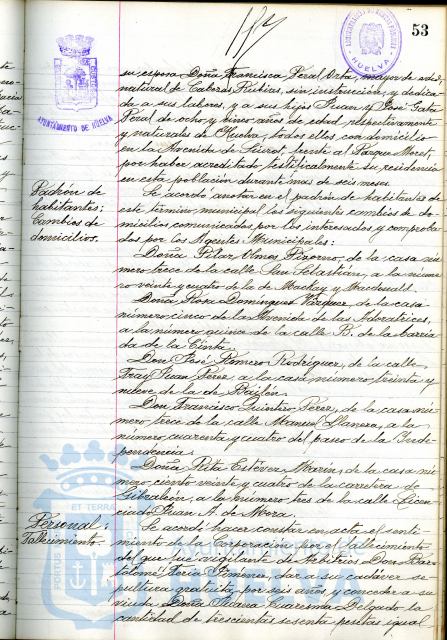 53
AYUNTAMIENTO DE HUELVA
HUELVA
su esposa Doña Francisca Peral Orta, mayor de edad,
natural de Cabezas Rubias, sin instrucción, y dedica-
da a sus labores, y a sus hijos Juan y José
Peral de ocho y cinco años de edad, respectivamente
y naturales de Huelva, todos ellos con domicilio
en la Avenida de frente al Parque Moret,
por haber acreditado testificalmente su residencia
en esta población durante más de seis meses.
Padrón de
habitantes:
Cambios de
domicilios.
Se acordó anotar en el padrón de habitantes de
este término municipal los siguientes cambios de do-
micilios comunicados por los interesados y comproba-
dos por los Agentes Municipales:
Doña Pilar Olmos Pizorno, de la casa nú-
mero trece de la calle San Sebastián, a la núme-
ro veinte y cuatro de la de Mackay y Macdonald.
Doña Rosa Domínguez Márquez, de la casa
número cinco de la Avenida de las Adoratrices,
a la número quince de la calle B. de la barria-
da de la Cinta.
Don José Romero Rodríguez, de la calle
Fray Juan Pérez a la casa número treinta y
nueve de la de Bailén.
Don Francisco Quintero Pérez, de la casa nú-
mero trece de la calle Manuel Llanera, a la
número cuarenta y cuatro del paseo de la Inde-
pendencia.
Doña Rita Estévez Marín, de la casa nú-
mero ciento veinte y cuatro de la carretera de
Gibraleón, a la número tres de la calle Licen-
ciado Juan A. de Mora.
Personal:
Fallecimiento.
Se acordó hacer constar en acta el senti-
miento de la Corporación por el fallecimiento
del que fué vigilante de Arbitrios Don Bar-
tolomé Feria Jiménez, dar a su cadáver se-
pultura gratuita por seis años y conceder a su
viuda Doña Cuaresma Delgado la
cantidad de trescientas sesenta pesetas igual